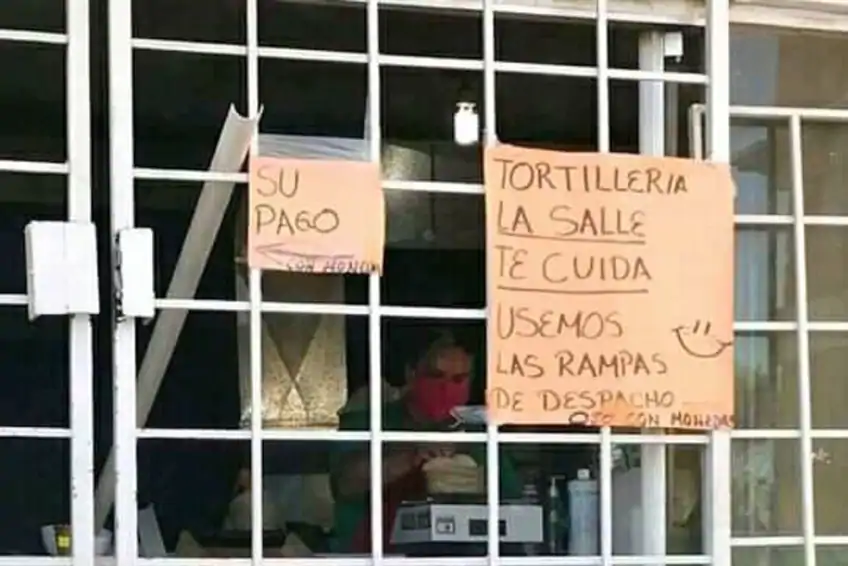 SU
PAGO
CON MONEDA
TORTILLERIA
LA SALLE
TE CUIDA
USEMOS
LAS RAMPAS
DE DESPACHO
OJO CON MONEDAS